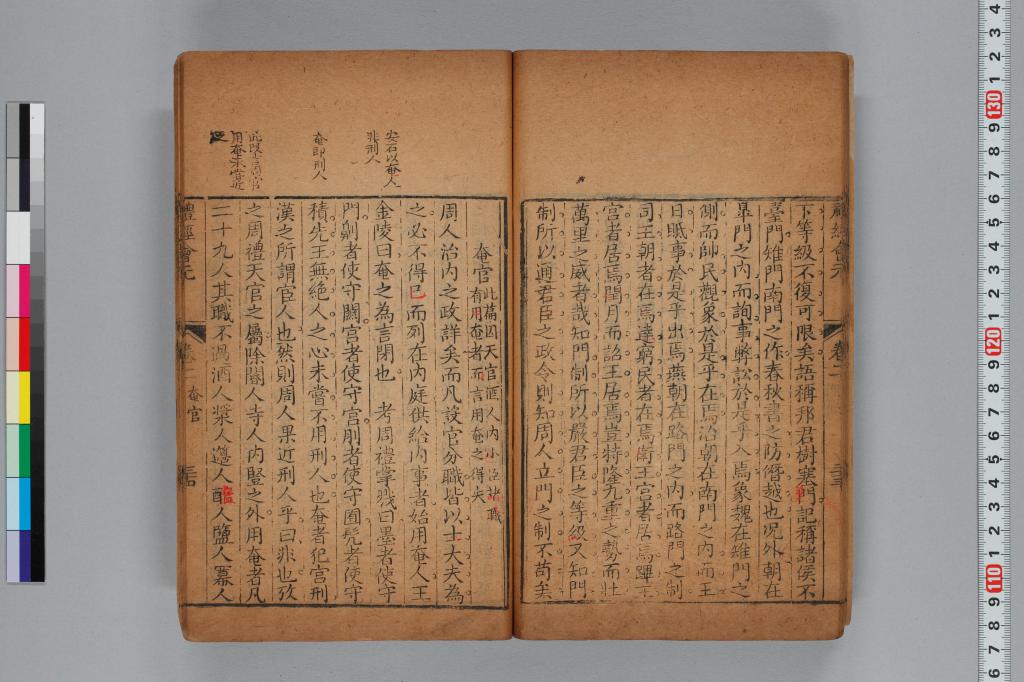 下等級不復可限矣語稱邦君樹塞門記稱諸侯不
臺門雉門南門之作春秋書之防僭越也况外朝在
臯門之内而詢事弊訟於是乎入焉象魏在雉門之
側而帥民觀象於是乎在焉治朝在南門之内而王
日眡事於是乎出焉燕朝在路門之内而路門之制
司王朝者在焉達窮民者在焉衛王宮者居焉蹕王
宮者居焉閏月而詔王居焉豈特隆九重之勢而壯
萬里之威者哉知門制所以嚴君臣之等級又知門
制所以通君臣之政令則知周人立門之制不苟矣
奄官
此篇因天官酒人内小臣諸職
有用奄者而言用奄之得失
周人治内之政詳矣而凡設官分職皆以士大夫為
之必不得已而列在内庭供給内事者始用奄人王
金陵曰奄之為言閉也 考周禮掌戮曰墨者使守
門劓者使守關宮者使守宮刖者使守囿髡者使守
積先王無絶人之心未嘗不用刑人也奄者犯宮刑
漢之所謂宦人也然則周人果近刑人乎曰非也攷
之周禮天官之屬除閽人寺人内豎之外用奄者凡
二十九人其職不過酒人漿人籩人醢人鹽人冪人
安石以奄人
非刑人
奄即刑人
用奄未嘗近
禮經會元
卷二
奄官